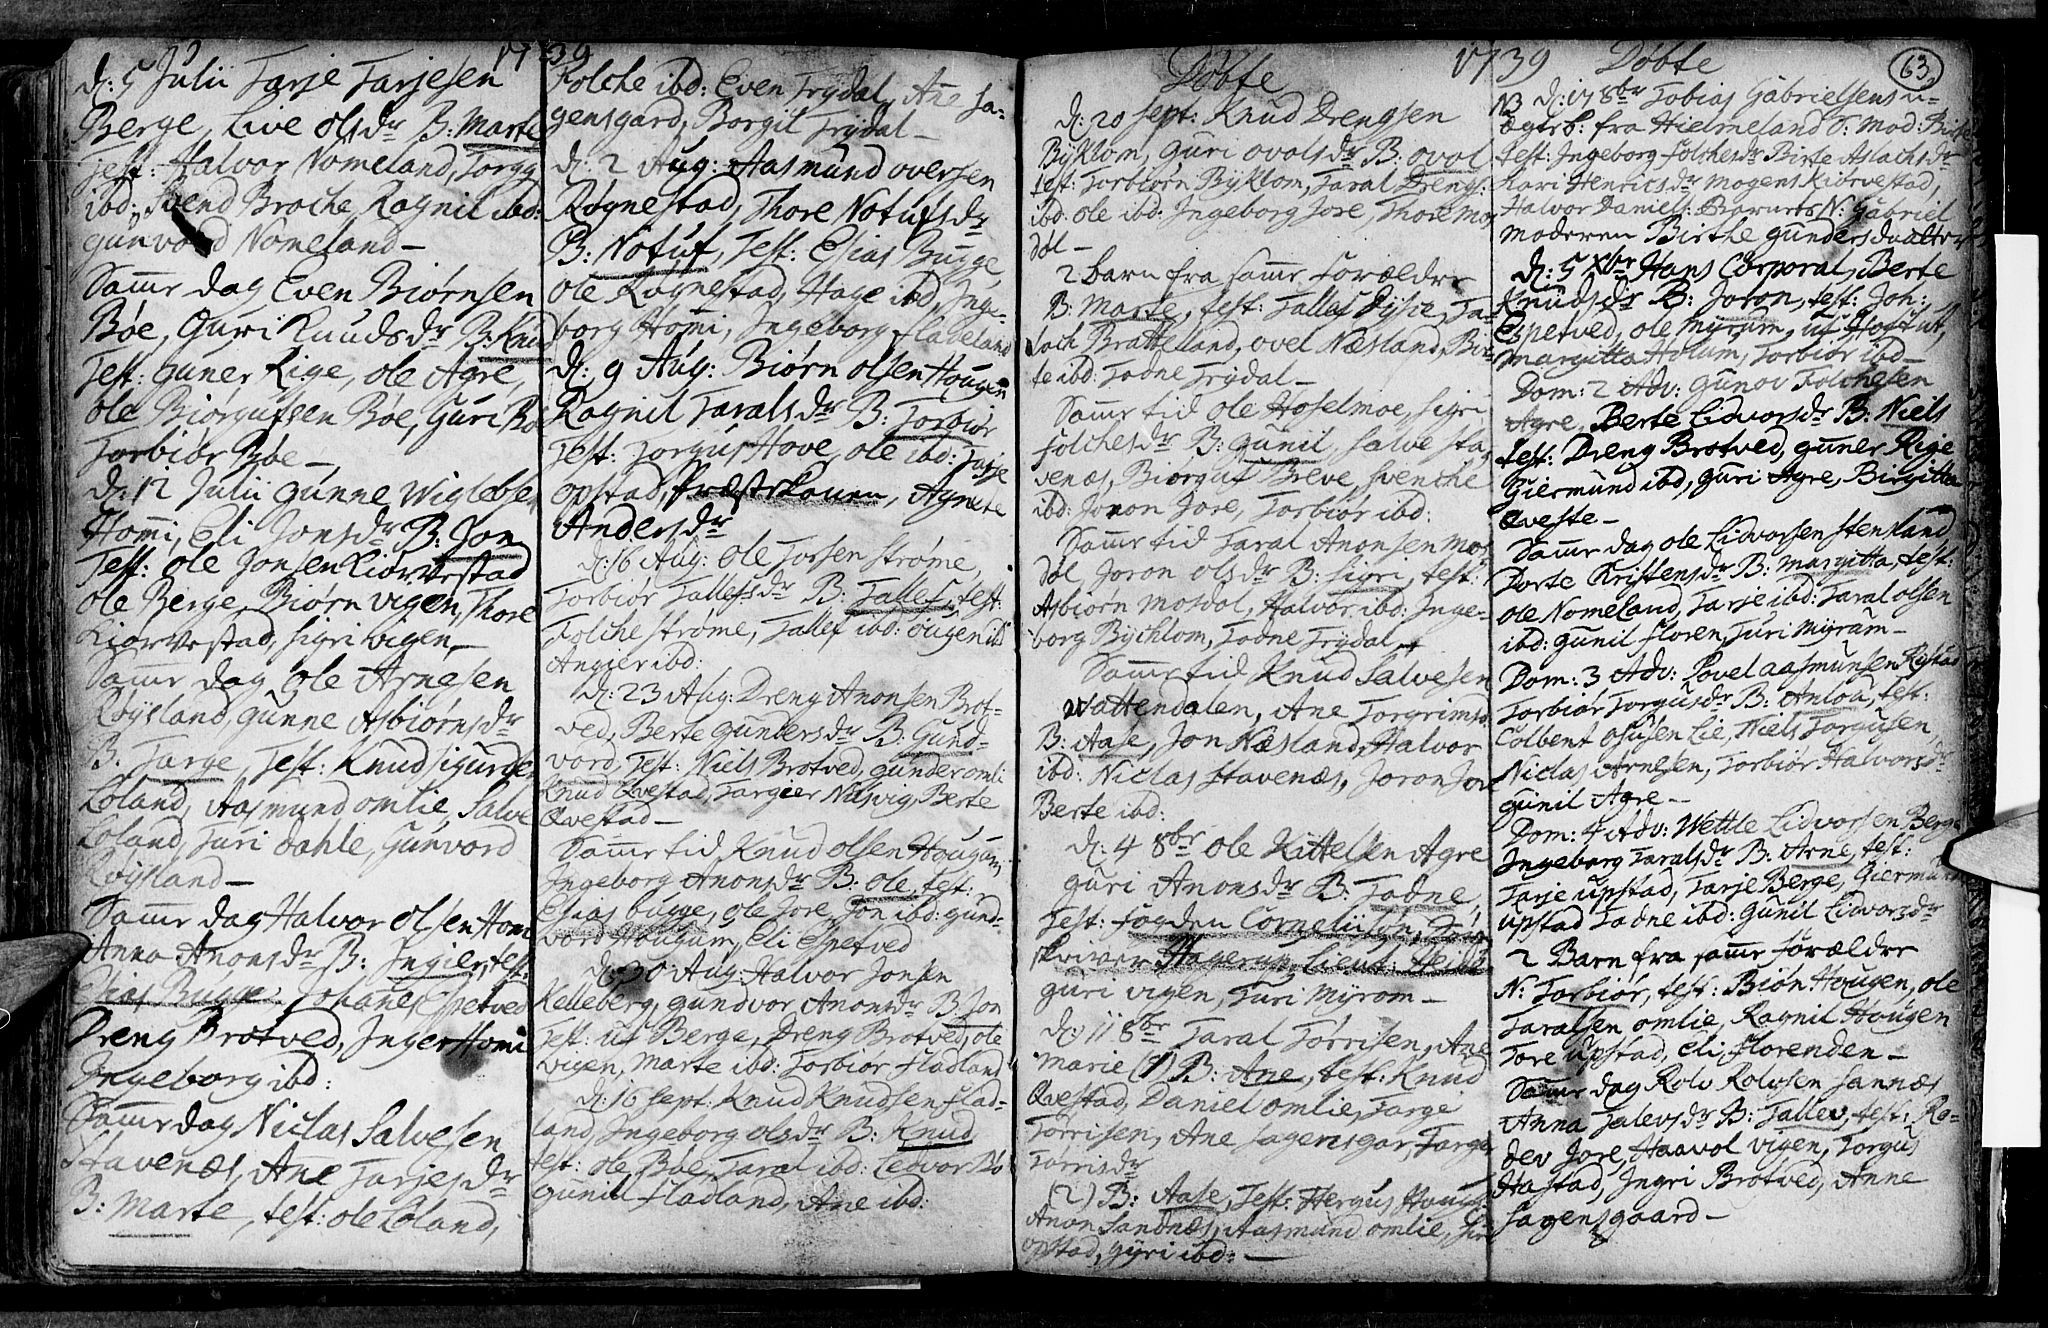 1739
d: 5 Julii Tarje Tarjesen
Berge, Live olsdr B: Marte
Test: Halvor Nomeland, Torgg
ibd: Svend Broche Ragnil ibd:
Gunvord Nomeland —
Samme dag Even Biørnsen
Bøe, Guri Knudsdr B: Knud
Test: Guner Rige, ole Agre,
ole Biørgufsen Bøe, Guri Bø
Torbiør Bøe —
d: 12 Julii Gunne Wiglebsen
Hommi, Eli Jonsdr B: Jon
Test: ole Jonsen Kiørvestad
ole Berge, Biørn vigen, Thore
Kiørvestad, Sigri vigen —
Samme dag ole Arnesen
Røysland, Gunne Asbiørnsdr
B. Targe, Test: Knud Sigurdsen
Loland, Aasmund omlie, Salve
Loland, Turi Dahle, Gunvord
Røysland —
Samme dag Halvor olsen Hom
Anna Anonsdr B: Ingier, test:
Elias Bugge, Johanes Espetved
Dreng Brotved, Inger Homi
Ingeborg ibd:
Samme dag Niclas Salvesen
Stavenæs, Ane Tarjesdr
B: Marte, test: ole Loland,
Folche ibd: Even Trydal, Ane Sa-
gensgard, Borgil Trydal —
d: 2 Aug: Aasmund oversen
Røgnestad, Thore Notufsdr
B: Notuf, Test: Elias Bugge,
ole Rognestad, Hage ibd, Inge-
borg Homi, Ingeborg Fladeland
d: 9 Aug: Biørn olsen Hougen
Ragnil Taralsdr B: Torbiør
Test: Torgus Hove, ole ibd: Tarje
opstad, Præstekonen, Agnete
Andersdr
d: 16 Aug: ole Torsen Strøme,
Torbiør Tallefsdr B: Tallef, test:
Folche Strøme, Tallef ibd: ougen ibd
Angier ibd:
d: 23 Aug: Dreng Anonsen Brot-
ved, Berte Gundersdr B: Gund-
vord, Test: Niels Brotved, Gunder omli
Knud Qvestad, Targier Nesvig, Berte
Qvestad —
Samme tid Knud olsen Hougum,
Ingeborg Anonsdr B: ole, test:
Elias Bugge, ole Jore, Jon ibd: Gund-
vord Hougum, Eli Espetved
d: 30 Aug: Halvor Jonsen
Kelleberg, Gundvor Anonsdr B: Jon
Test: uf Berge, Dreng Brotved, ole
vigen, Marte ibd: Torbiør Fladland
d: 16 Sept: Knud Knudsen Flad-
land, Ingeborg olsdr B: Knud
test: ole Bøe, Taral ibd: Ledvor Bø
Gunil Fladland, Ane ibd:
Døbte 1739 Døbte
63
d: 20 Sept: Knud Drengsen
Bÿklom, Guri ovolsdr B: ovol
test: Torbiørn Bÿklom, Taral Drengs:
ibd: ole ibd: Ingeborg Jore, Thore Mos
døl —
2 barn fra samme Forældre
B: Marte, test: Tallef Dÿsie, Ta-
lach Bratteland, ovel Næsland, Bir-
te ibd: Todne Trÿdal —
Samme tid ole Hoselmoe, Sigri
Folchesdr B: Gunil, Salve Sta-
venæs, Biørguf Breve, Svenche
ibd: Joron Jore, Torbiør ibd:
Samme tid Taral Anonsen Mos
døl, Joron olsdr B: Sigri, test:
Asbiørn Mosdøl, Halvor ibd: Inge-
borg Bÿchlom, Todne Trÿdal
Samme tid Knud Salvesen
Vattendalen, Ane Torgrimsd
B: Aase, Jon Næsland, Halvor
ibd: Niclas Stavenæs, Joron Jore
Berte ibd:
d: 4 8br ole Kittelsen Agre
Guri Anonsdr B: Todne,
Test: Fogden Corneliisen, Soren
skriver Hagerup, Lieut: Heide
Guri vigen, Turi Mÿrom —
d: 11 8br Taral Tørrisen, Ane
Marie (1) B: Ane, test: Knud
Qvestad, Daniel omlie, Targe
Tørrisen, Ane Sagensgar, Targe
Tørrisdr
(2) B: Aase, Test: Hergus Hougs
Anon Sandnæs, Aasmund omlie, Siri
opstad, Gÿri ibd: —
NB d: 17 8br Tobias Gabrielsens u-
ægteb: fra Hielmeland S: Mod: Birte
test: Ingeborg Folchesdr Birte Aslachsdr
Kari Henricsdr Mogens Kiørvestad,
Halvor Daniels: Barnets N: Gabriel
Moderen Birthe Gundersdaatter
d: 5 Xbr Hans Corporal, Berte
Knudsdr B: Joron, test: Joh:
Espetved, ole Mÿrum,
Margitta Holum, Torbiør ibd —
Dom: 2 Adv: Gunov Folchesen
Agre, Berte Lidvorsdr B: Niels
test: Dreng Brotved, Guner Rige
Giermund ibd, Guri Agre, Birgitta
Qveste —
Samme dag ole Lidvorsen Stensland,
Dorte Kristensdr B: Margitta, test:
ole Nomeland, Tarje ibd: Taral olsen
ibd: Gunil Floren, Turi Mÿrum —
Dom: 3 Adv: Povel Aasmunsen Rystad
Torbiør Torgusdr B: Anloa, test:
Colbent osusen Lie, Niels Torgusen,
Niclas Arnesen, Torbiør Halvorsdr
Gunil Agre —
Dom: 4 Adv: Wettle Lidvorsen Berge
Ingeborg Taralsdr B: Arne, test:
Tarje upstad, Tarje Berge, Giermund
upstad Todne ibd: Gunil Lidvorsdr
2 Barn fra samme Forældre
N: Torbiør, test: Biøn Hougen, ole
Taralsen omlie, Ragnil Hougen
Tore upstad, Eli Florenden —
Samme dag Rolv Rolvsen Sannæs
Anna Talevsdr B: Tallev, test: Ro-
dev Jore, Haavol vigen, Torgus
Hastad, Ingri Brotved, Anne
Sagensgaard —